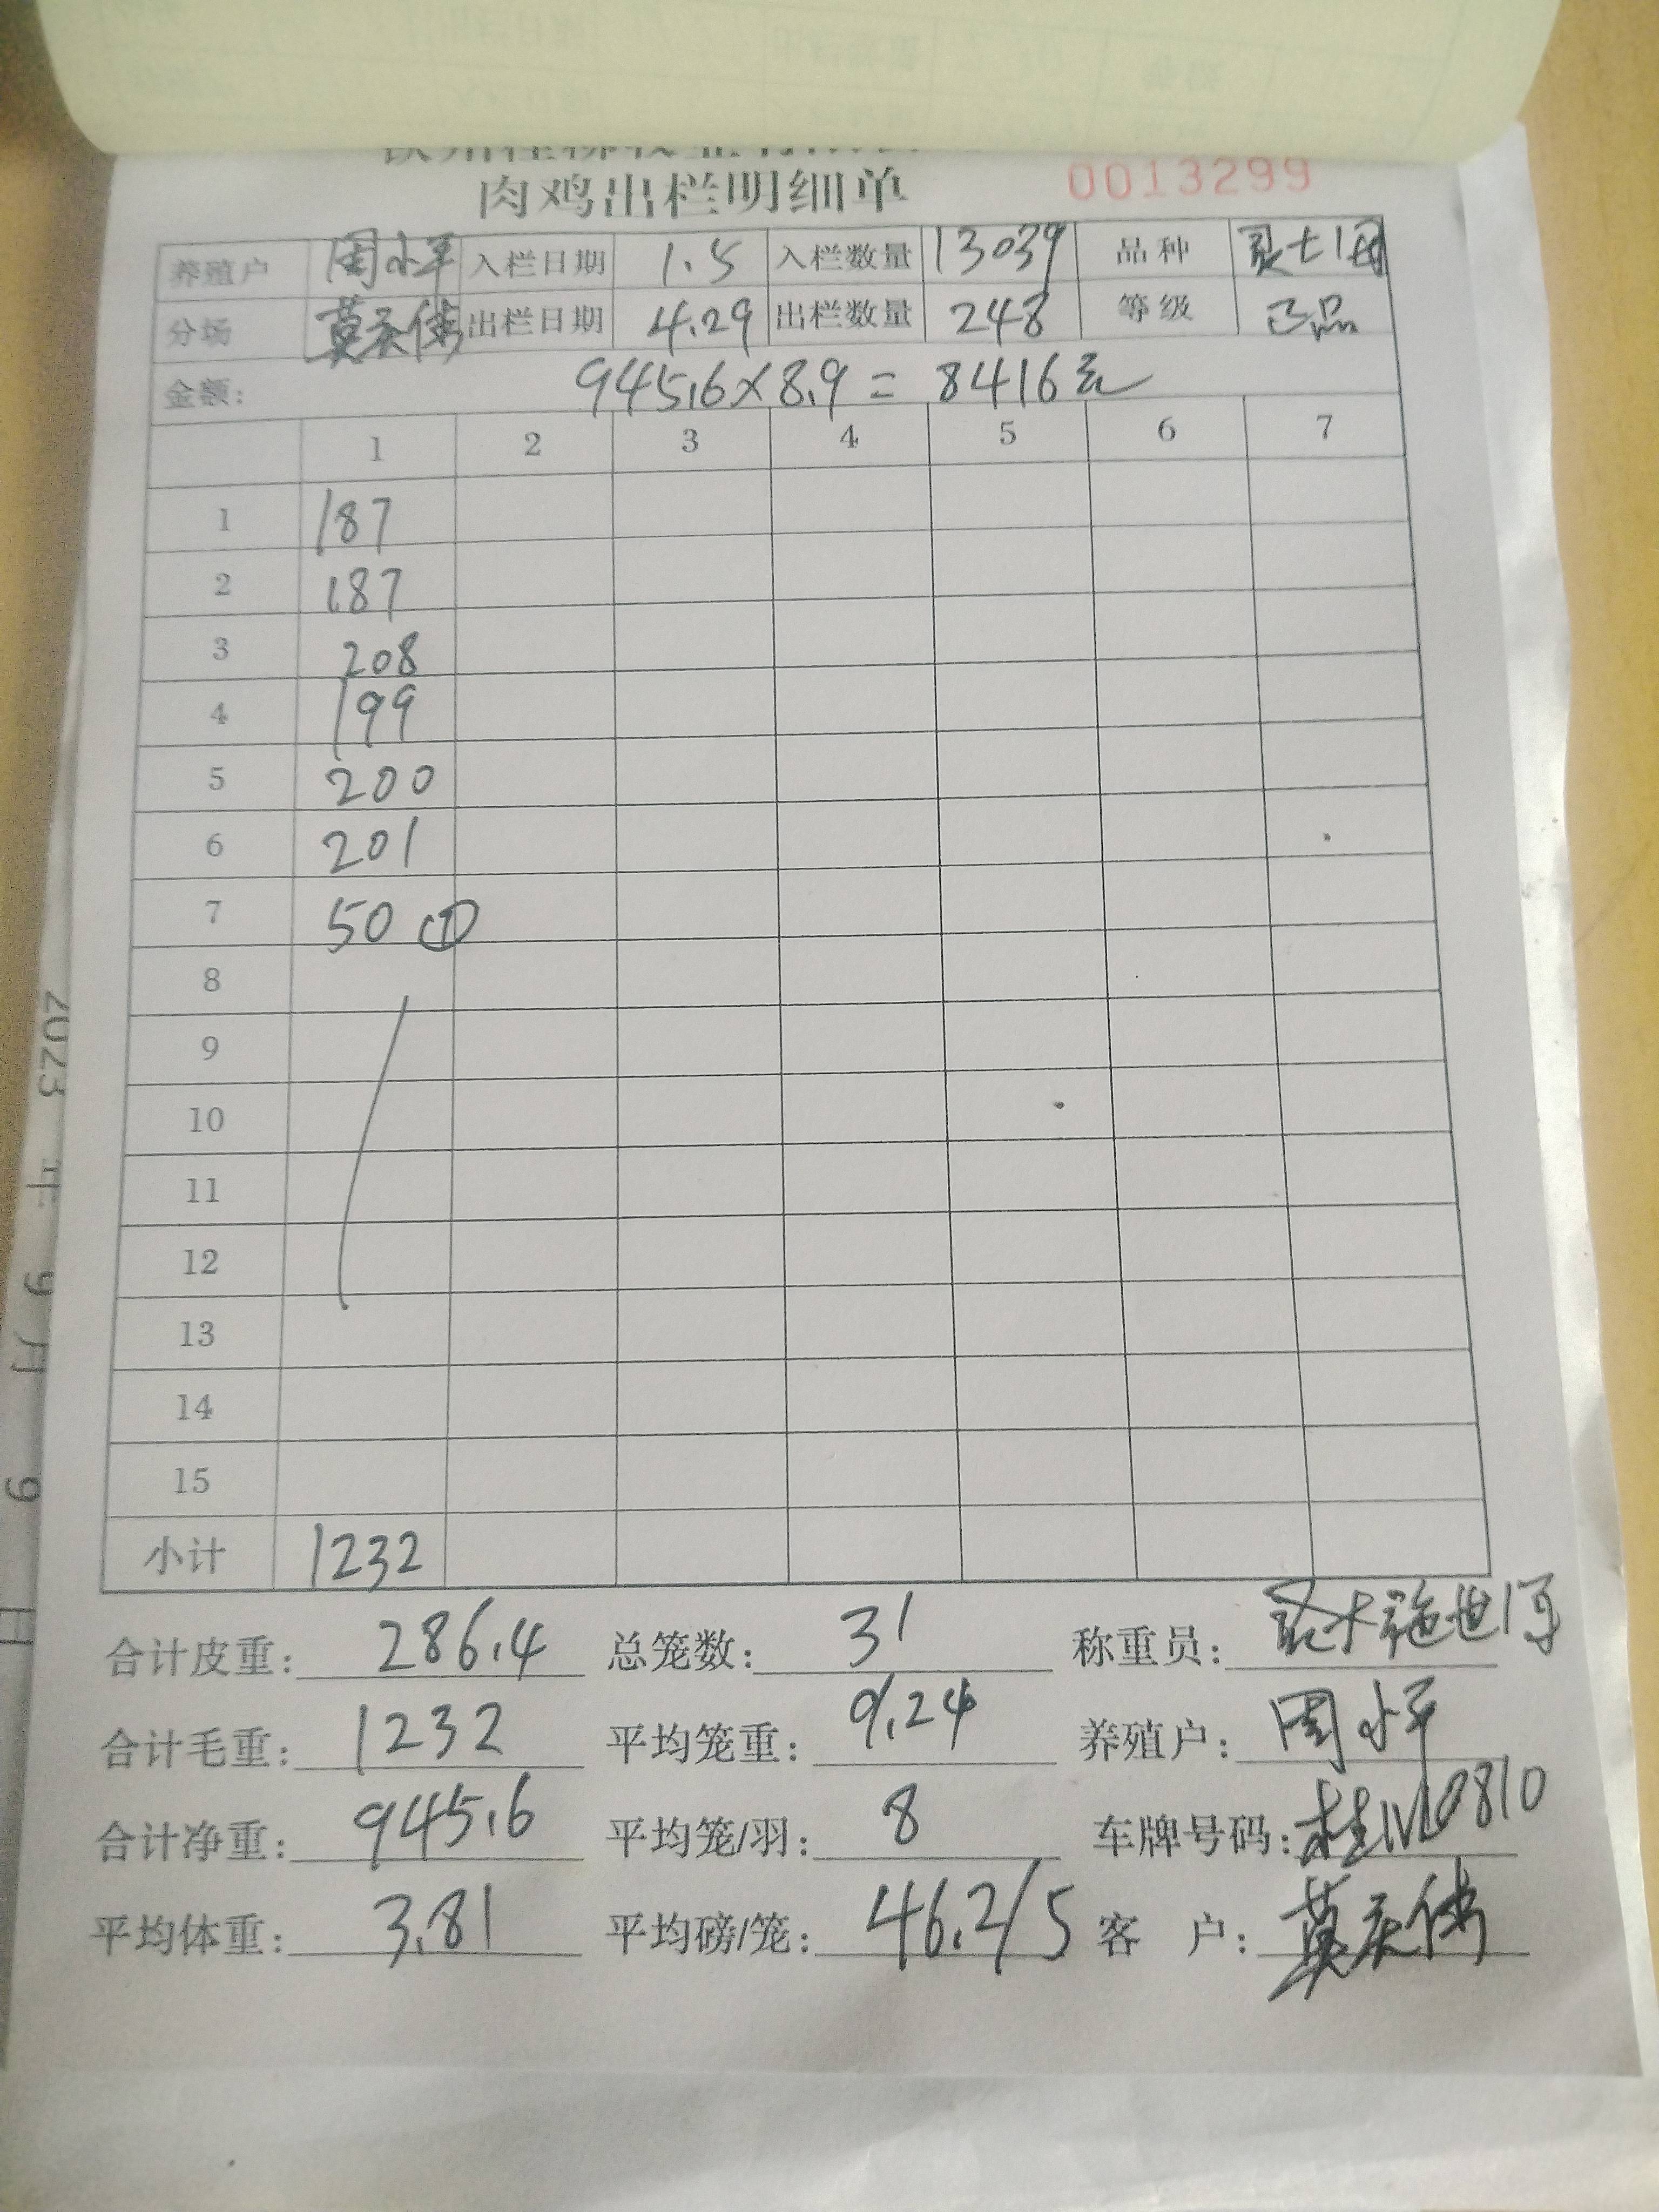 肉鸡出栏明细单 0013299
养殖户 周小平 入栏日期 1.5 入栏数量 13039 品种
分场 莫庆伟 出栏日期 4.29 出栏数量 248 等级 正品
金额: 945.6×8.9=8416元
1 2 3 4 5 6 7
1 187
2 187
3 208
4 199
5 200
6 201
7 50 ①
8
9
10
11
12
13
14
15
小计 1232
合计皮重: 286.4 总笼数: 31 称重员:
合计毛重: 1232 平均笼重: 9.24 养殖户: 周小平
合计净重: 945.6 平均笼/羽: 8 车牌号码:
平均体重: 3.81 平均磅/笼: 46.2/5 客 户: 莫庆伟
2023 年 9 月 9 日